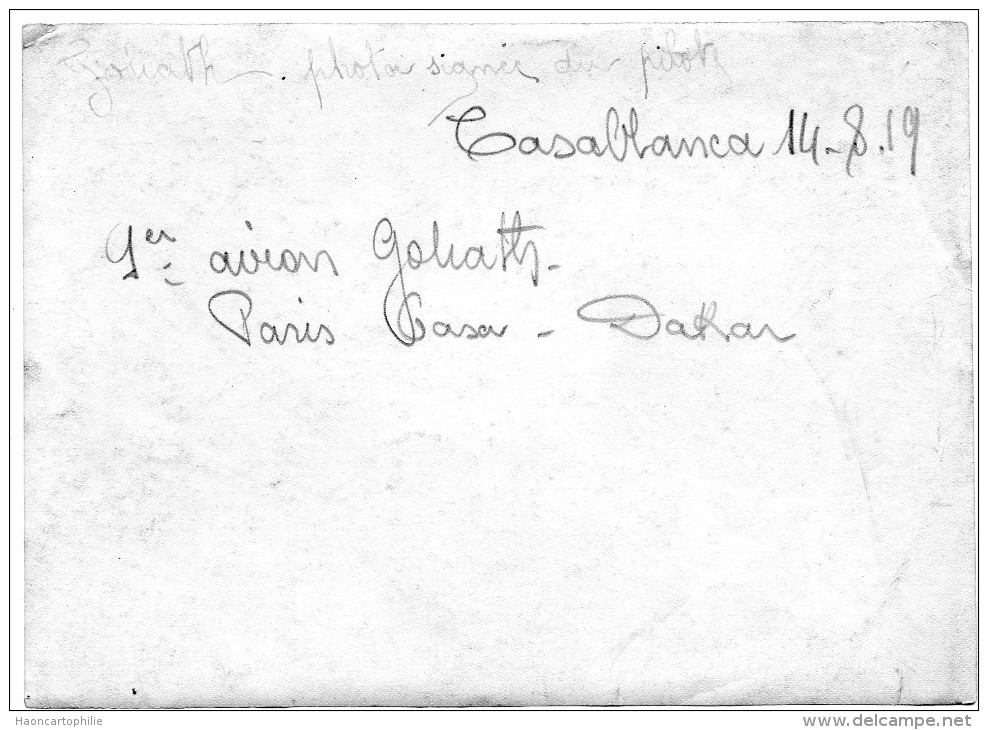 Goliath - photo signée du pilote
Casablanca 14-8.19
1er avion Goliath -
Paris Casa - Dakar
Haoncartophilie
www.delcampe.net